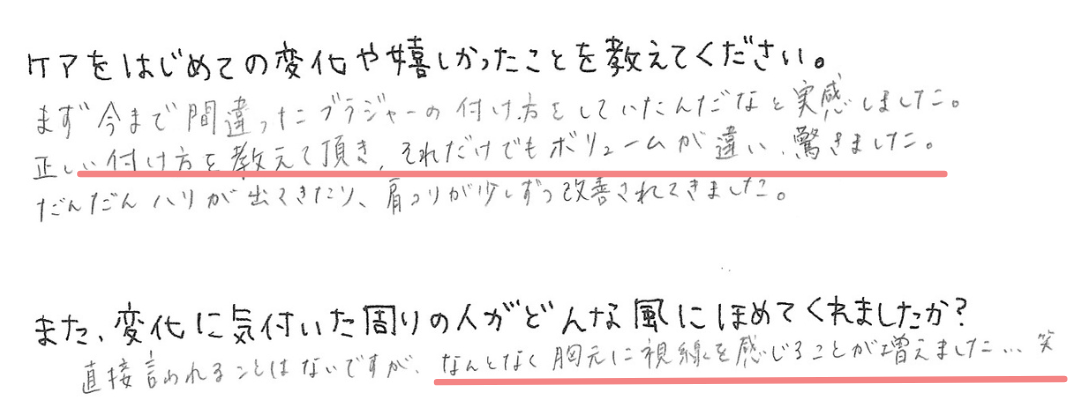 ケアをはじめての変化や嬉しかったことを教えてください。
まず今まで間違ったブラジャーの付け方をしていたんだなと実感しました。
正しい付け方を教えて頂き、それだけでもボリュームが違い、驚きました。
だんだんハリが出てきたり、肩コリが少しずつ改善されてきました。
また、変化に気付いた周りの人がどんな風にほめてくれましたか?
直接言われることはないですが、なんとなく胸元に視線を感じることが増えました…笑